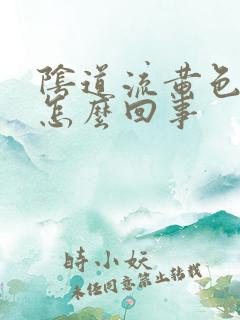 陰道流黃色
怎麼回事
時小妖
未經同意禁止轉載